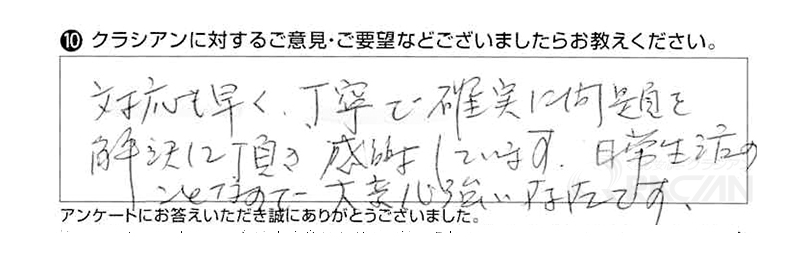 ⑩ クラシアンに対するご意見・ご要望などございましたらお教えください。
対応も早く、丁寧で確実に問題を
解決して頂き感謝しています。日常生活の
ことなので大変心強い存在です、
アンケートにお答えいただき誠にありがとうございました。